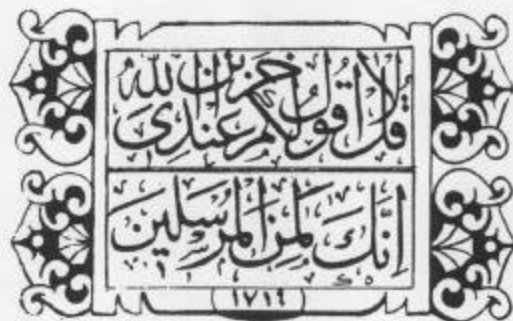 قل لا اقول لكم عندى خزئن الله
انك لمن المرسلين
١٧١٤